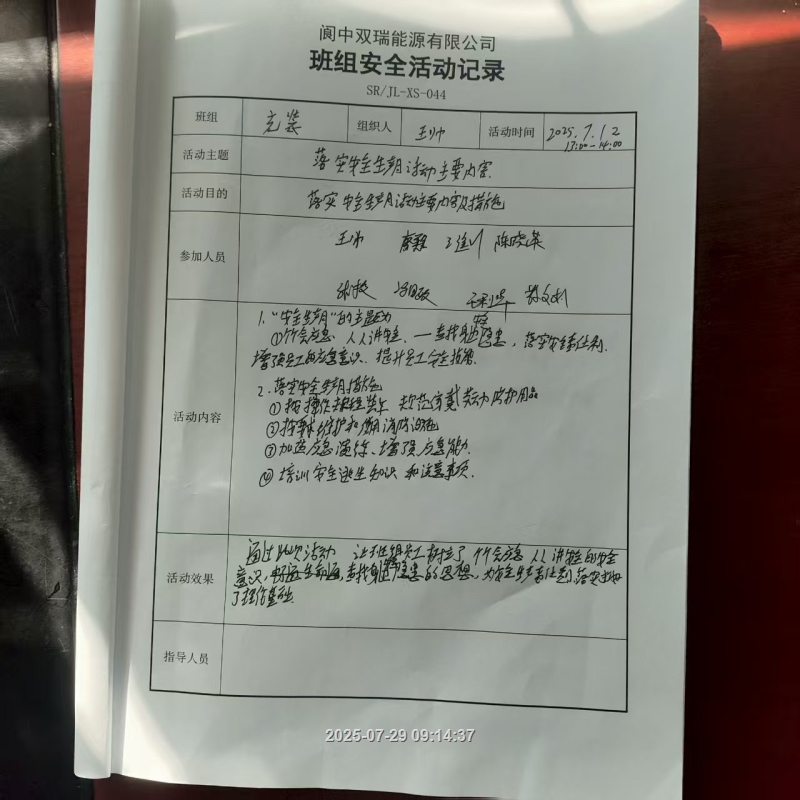 阆中双瑞能源有限公司
班组安全活动记录
SR/JL-XS-044
班组 充装 组织人 王帅 活动时间 2025.7.12
13:00-14:00
活动主题 落实安全生产月活动主要内容.
活动目的 落实安全生产月活动主要内容及措施
参加人员
王帅 陈晓英
活动内容
1."安全生产月"的主题为
①人人讲安全、个个会应急 — 查找身边安全隐患,落实安全责任制.
增强员工的应急意识、提升员工安全技能.
2.落实安全生产月措施
①按操作规程装车 规范穿戴劳动防护用品
②按要求维护和使用消防设施
③加强应急演练、增强应急能力.
④培训安全逃生知识和注意事项.
活动效果
通过此次活动 让班组员工树立了个个会应急 人人讲安全的安全
意识,畅通生命通道,查找身边安全隐患的思想,为安全生产责任制落实打好
了坚实基础.
指导人员
2025-07-29 09:14:37